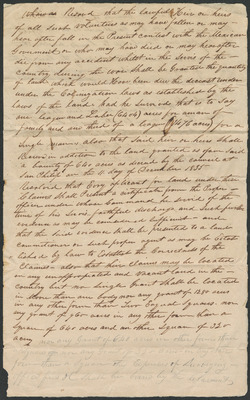 Whereas Resolved that the lawful Heir or heirs
of all such Volunteers as may have fallen or may
here after fall in the Present contest with the Mexican
Government, or who may have died or may hereafter
die from any accident whilst in the service of the
Country, during the war shall be Granted the quantity
of land which would have been due the deceased under
under the Colonization laws as established by the
laws of the land had he survived that is to Say
one league and Labor (4604) acres for a man of
family and one third of a league (1476 acres) for a
Single man — also that Said heir or heirs Shall
Receive in addition to the land granted as afore said
a bounty of 640 acres as decreed by the council at
San Felipe on the 11 day of December 1835
Resolved that Every applicant for land under these
Claims shall Produce a certificate from the Proper
officer under whose Command he served of the
time of his Service faithful discharge and such further
evidence as may be considered sufficient — and
that the Said evidence shall be presented to a land
commissioner or such proper agent as may be estab
lished by law to Establish the Correctness of the
Claims — also that these claims may be located
on any unappropriated and vacant land in the
country but no Single Grant shall be located
in more than one body nor any grant of 1280 acres
in any other form than Two Equal Squares. nor
any grant of 960 acres in any other form than a
Square of 640 acres and another Square of 320
acres